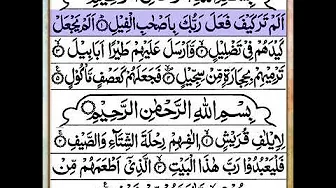 اَلَمْ تَرَ كَيْفَ فَعَلَ رَبُّكَ بِاَصْحٰبِ الْفِيْلِ ۝ اَلَمْ يَجْعَلْ
كَيْدَهُمْ فِيْ تَضْلِيْلٍ ۝ وَّاَرْسَلَ عَلَيْهِمْ طَيْرًا اَبَابِيْلَ ۝
تَرْمِيْهِمْ بِحِجَارَةٍ مِّنْ سِجِّيْلٍ ۝ فَجَعَلَهُمْ كَعَصْفٍ مَّاْكُوْلٍ ۝
بِسْمِ اللّٰهِ الرَّحْمٰنِ الرَّحِيْمِ
لِاِيْلٰفِ قُرَيْشٍ ۝ اٖلٰفِهِمْ رِحْلَةَ الشِّتَآءِ وَالصَّيْفِ ۝
فَلْيَعْبُدُوْا رَبَّ هٰذَا الْبَيْتِ ۝ الَّذِيْٓ اَطْعَمَهُمْ مِّنْ